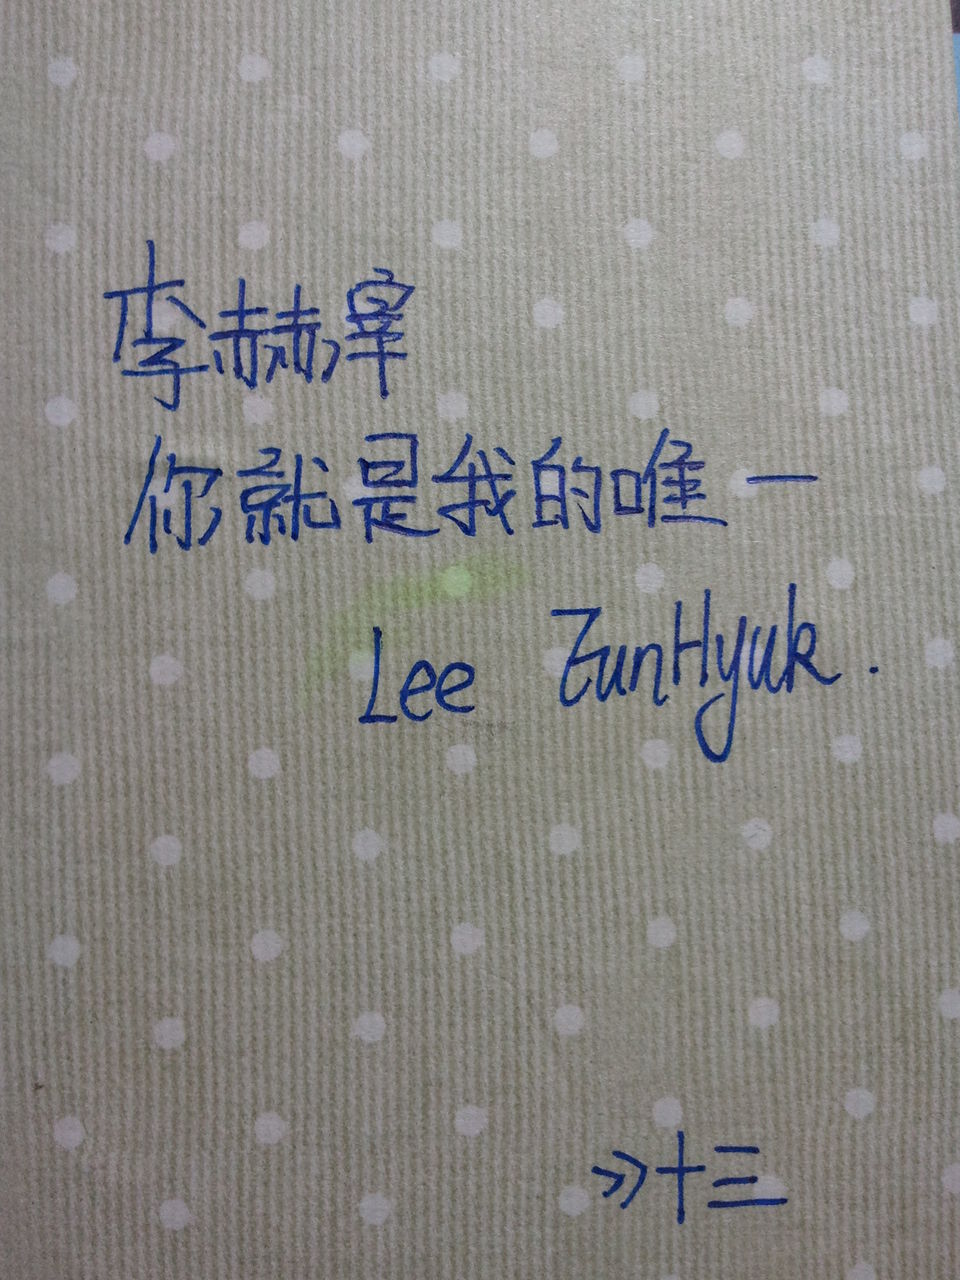 李赫宰
你就是我的唯一
Lee EunHyuk.
》十三